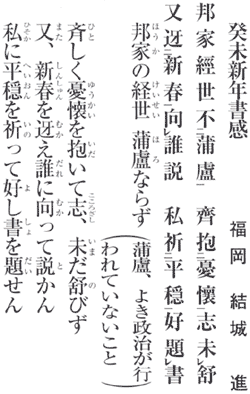 癸未新年書感　福岡　結城　進
邦家經世不蒲盧　齊抱二憂懷一志未レ舒
又迓二新春一向レ誰説　私祈二平穩一好題レ書
邦家の経世　蒲盧ならず（蒲盧、よき政治が行われていないこと）
斉しく憂懐を抱いて志　未だ舒びず
又、新春を迓え誰に向って説かん
私に平穏を祈って好し書を題せん